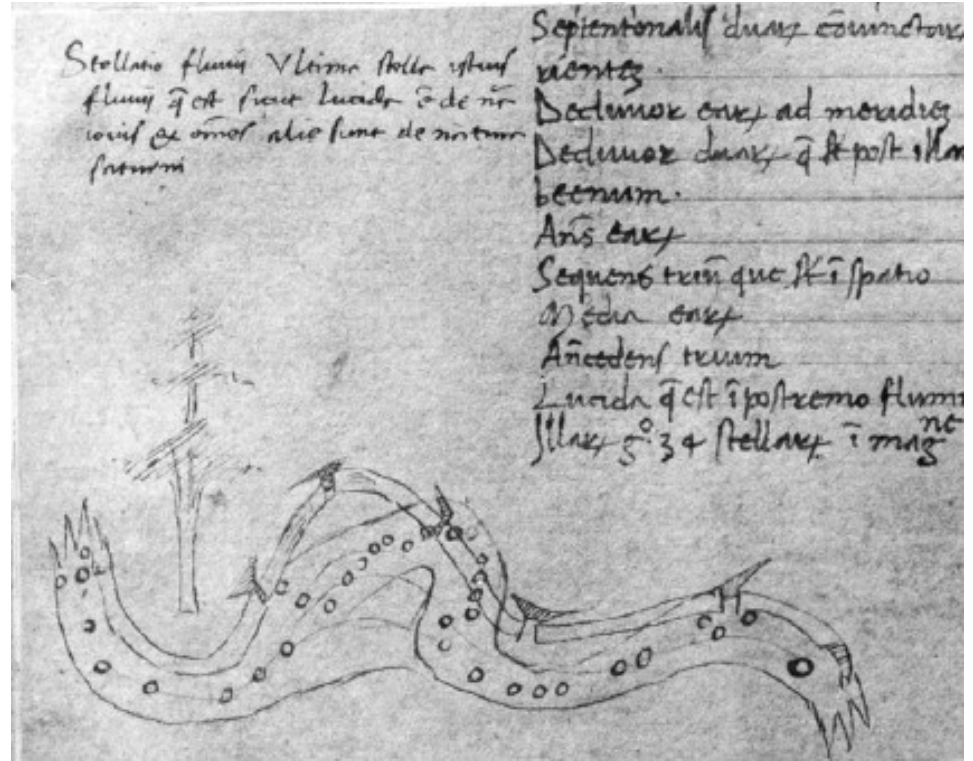 Stellatio fluuij Vltima stella istius
fluuij q̄ est sicut lucida ē de nr̄
iouis et om̄es alie sunt de natura
saturni
Septentrionalis duaꝝ coniunctaꝝ
rientez
Decliuior eaꝝ ad meridiez
Decliuior duaꝝ q̄ st̄ post illam
beenum.
An̄s eaꝝ
Sequens triū que st̄ ī spatio
Media eaꝝ
An̄cedens trium
Lucida q̄ est ī postremo flumi
Illaꝝ gͦ. 34 stellaꝝ ī magne